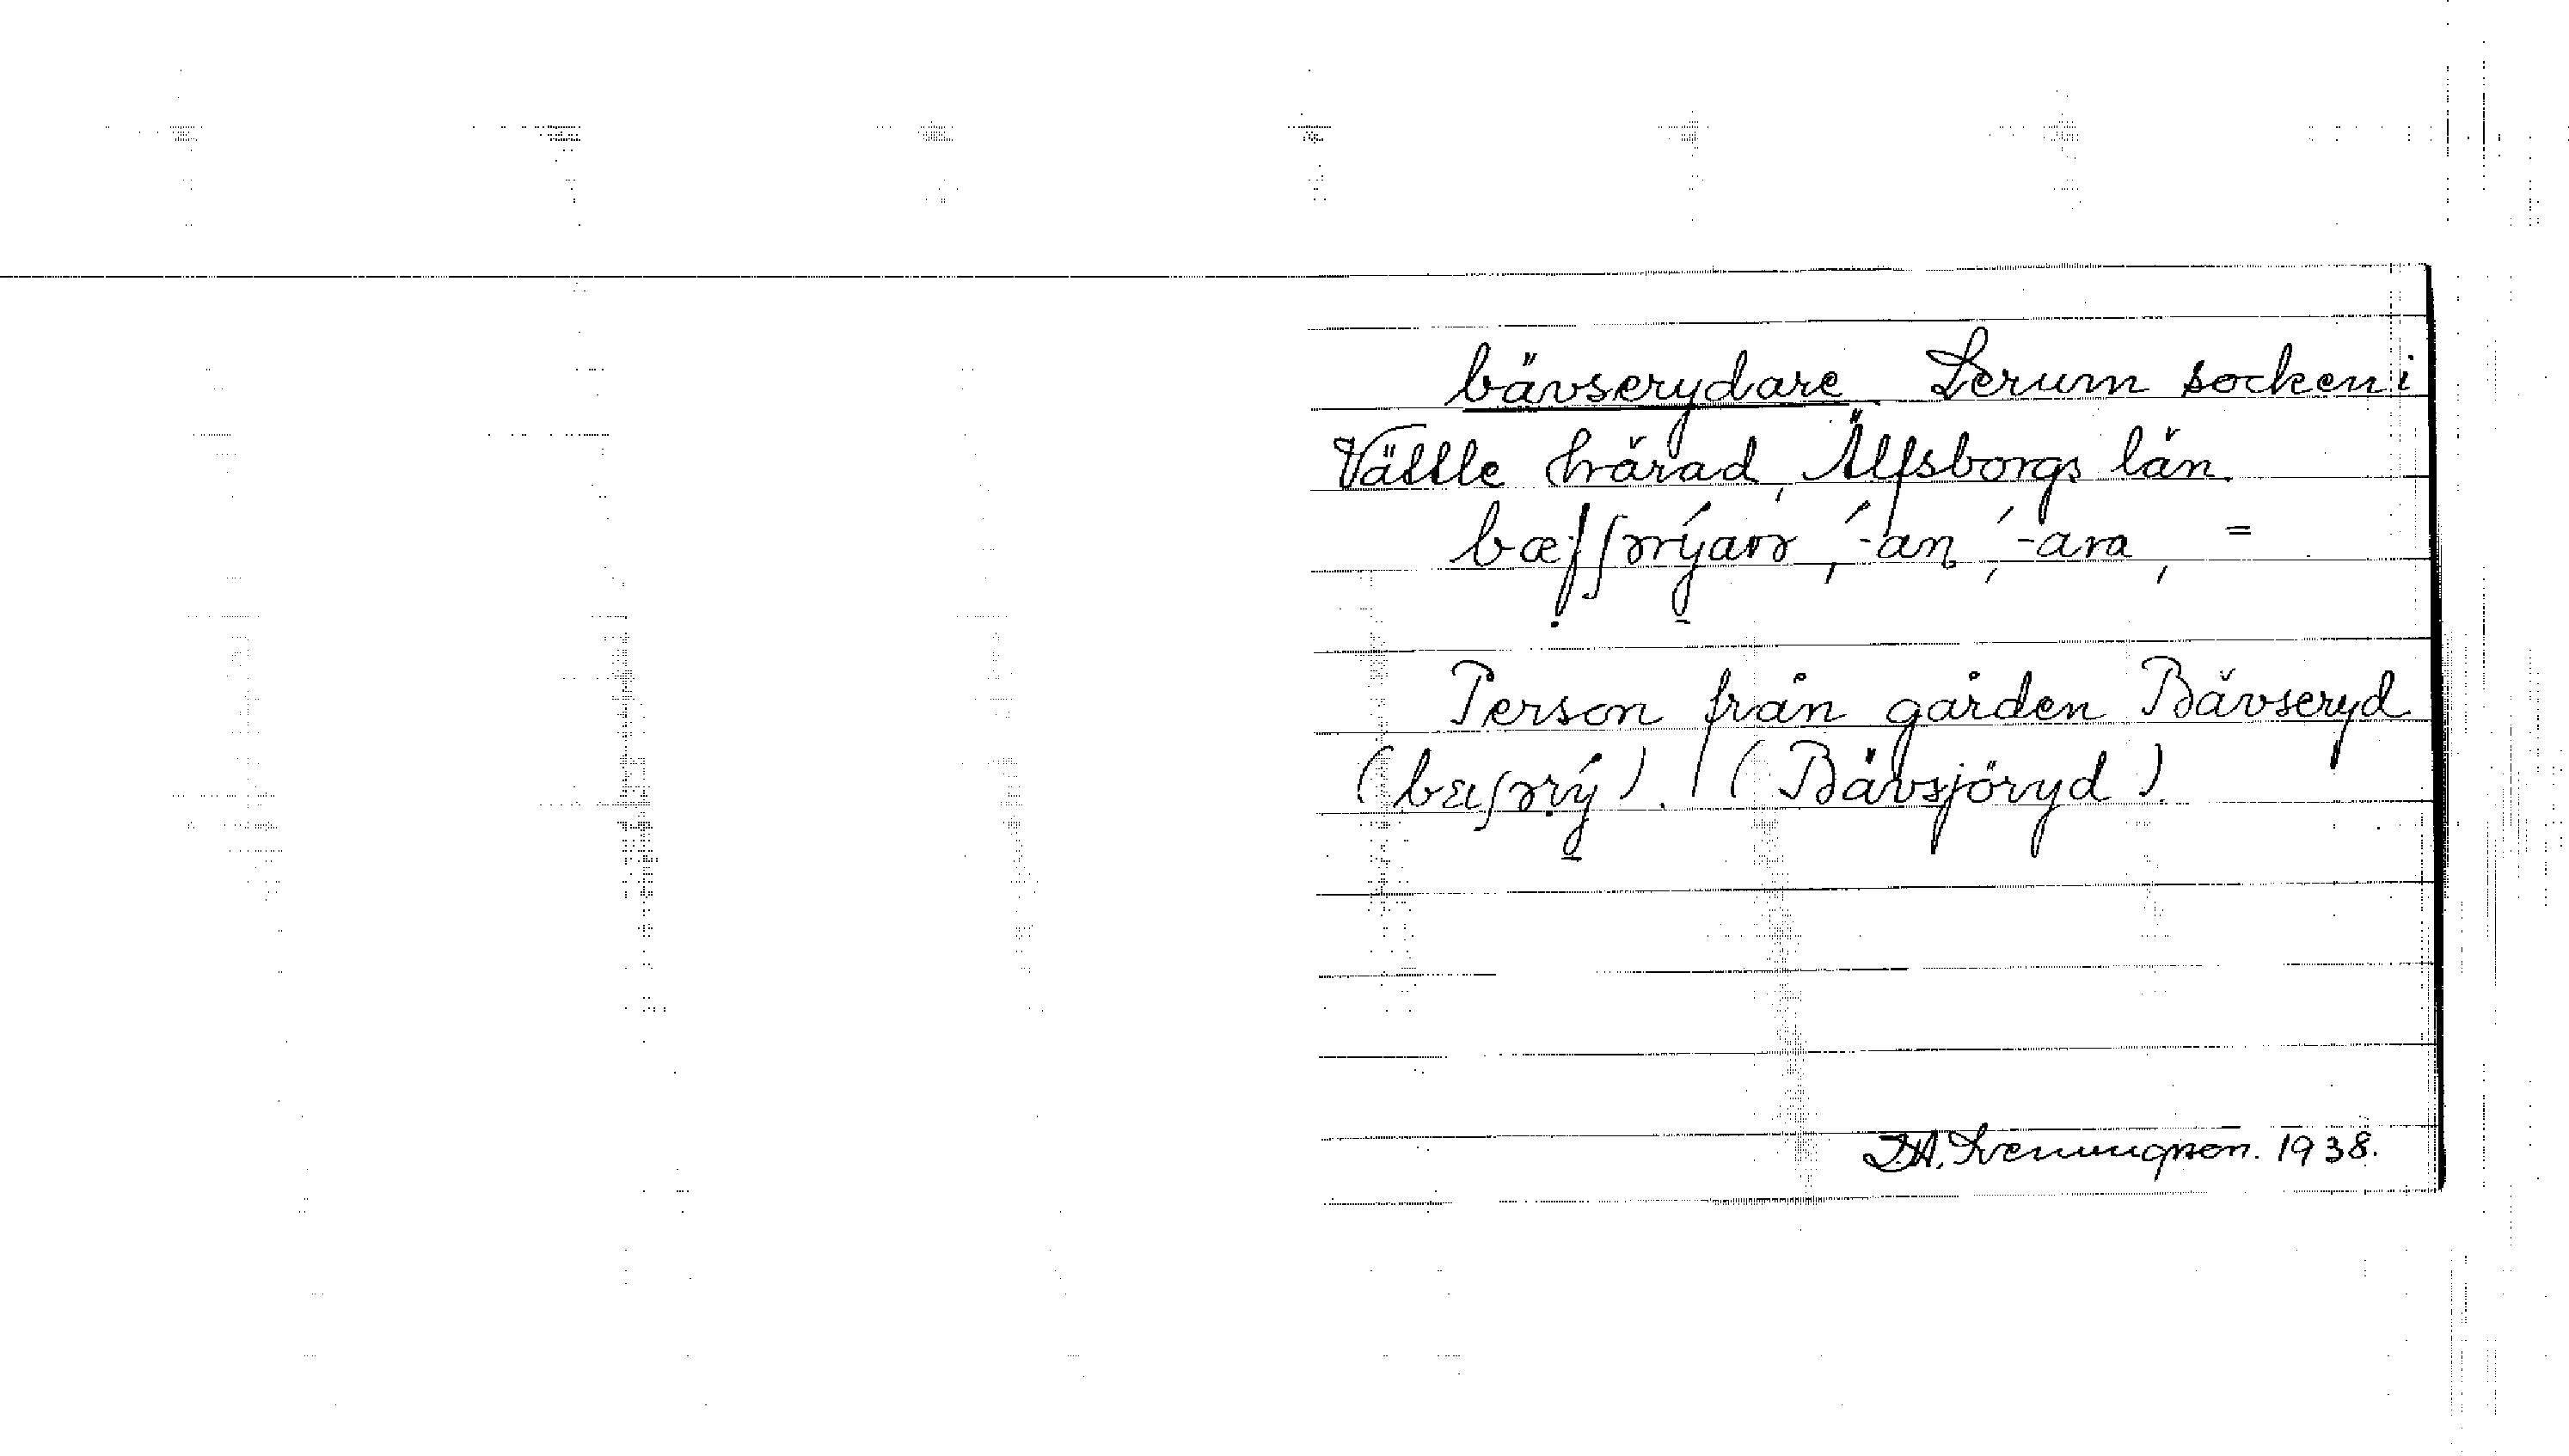 bävserydare. Lerum socken i
Vättle härad, Älfsborgs län.
bæfʃɤrýarɤ, ́-an, ́-ara, =
Person från gården Bävseryd
(bɛʃɤrý). (Bävsjöryd).
1938.